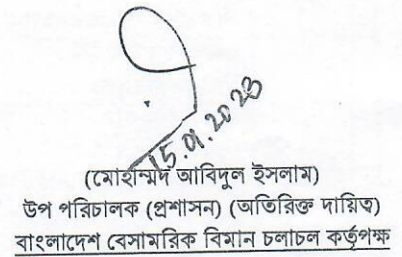 15.01.2023
(মোহাম্মদ আবিদুল ইসলাম)
উপ পরিচালক (প্রশাসন) (অতিরিক্ত দায়িত্ব)
বাংলাদেশ বেসামরিক বিমান চলাচল কর্তৃপক্ষ